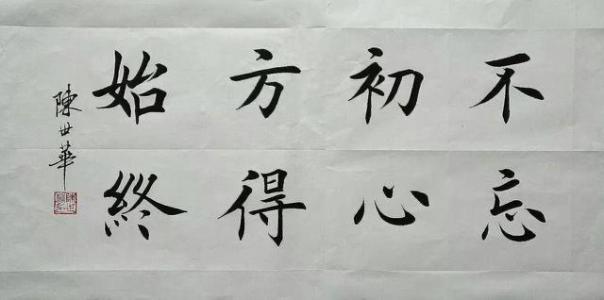 不忘
初心
方得
始終
陳世華